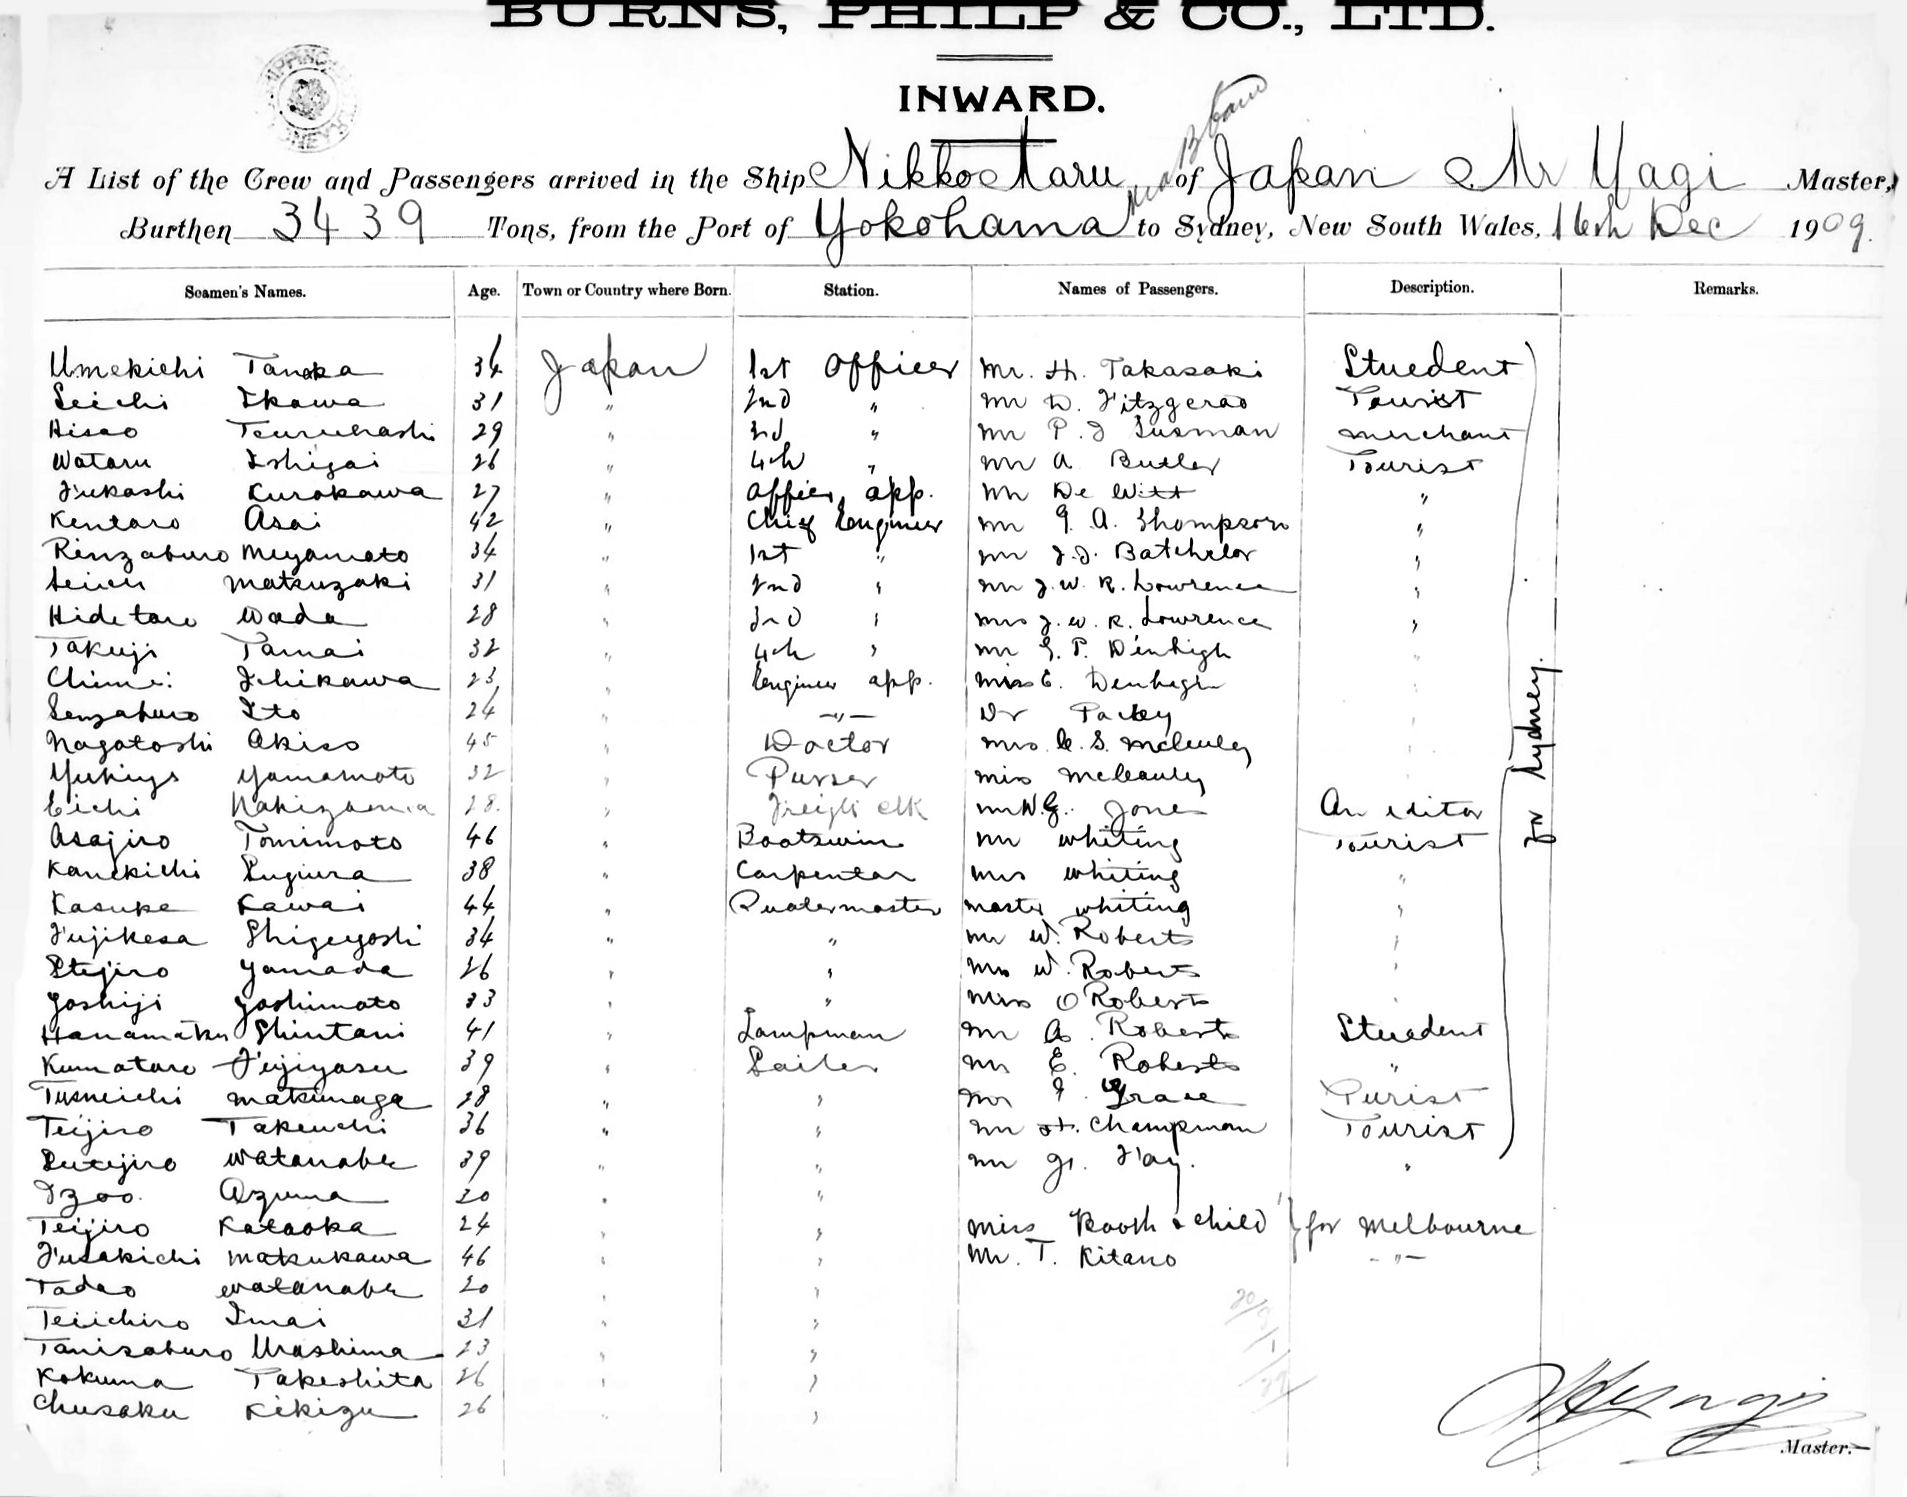 BURNS, PHILP & CO., LTD.
INWARD.
A List of the Crew and Passengers arrived in the Ship Nikko Maru of Japan Mr Yagi Master,
Burthen 3439 Tons, from the Port of Yokohama to Sydney, New South Wales, 16th Dec 1909.
Seamen's Names. Age. Town or Country where Born. Station. Names of Passengers. Description. Remarks.
Umekichi Tanaka 34 Japan 1st Officer Mr. H. Takasaki Stuedent
Seichi Ikawa 31 " 2nd " Mr D. Fitzgerao Tourist
Hisao Tsuruhashi 29 " 3rd " Mr P. J Susman Merchant
Wataru Ishigai 26 " 4th " Mr A Butler Tourist
Fukashi Kurokawa 27 " Officer app. Mr De Witt "
Kentaro Asai 42 " Chief Engineer Mr G. A. Thompson "
Rinzaburo Miyamoto 34 " 1st " Mr J.J. Batchelor "
Matsuzaki 31 " 2nd " Mr J. W. R. Lowrence "
Hidetaro Wada 28 " 3rd " Mrs J. W. R. Lowrence "
Takuji Tamai 32 " 4th " Mr G. P. Denhigh "
Ichikawa 23 " Engineer app. Miss E. "
Senzaburo Ito 24 " -"- Dr "
Nagatoshi Akiso 45 " Doctor Mrs "
Yamamoto 32 " Purser Miss McCauley
Eichi 28. " Freight clk Mr W.G. Jones An editor
Asajiro Tomimoto 46 " Boatswin Mr Whiting Tourist
Kanekichi Sugiura 38 " Carpentar Mrs Whiting "
Kasuke Kawai 44 " Quatermaster Master Whiting "
Fujikesa Shigeyoshi 34 " " Mr W. Roberts "
Yamada 26 " " Mrs W. Roberts "
Yoshiji Yoshimoto 33 " " Miss O Roberts "
Shintani 41 " Lampman Mr A. Roberts Stuedent
Kumataro Fujiyasu 39 " Sailer Mr E. Roberts "
Matsunaga 28 " " Grace Turist
Teijiro Takeuchi 36 " " Mr H. Champman Tourist
Watanabe 39 " " Mr G. Fay. "
for Sydney.
Izoo. Azuma 30 " "
Teijiro Kataoka 24 " " Miss Booth & child } for Melbourne
Fusakichi Matsukawa 46 " " Mr. T. Kitano -"-
Tadao Watanabe 20 " "
Teiichiro Imai 31 " "
Tanisaburo Urashima 23 " "
Kokuma Takeshita 26 " "
Chusaku Kikizu 26 " "
Master.